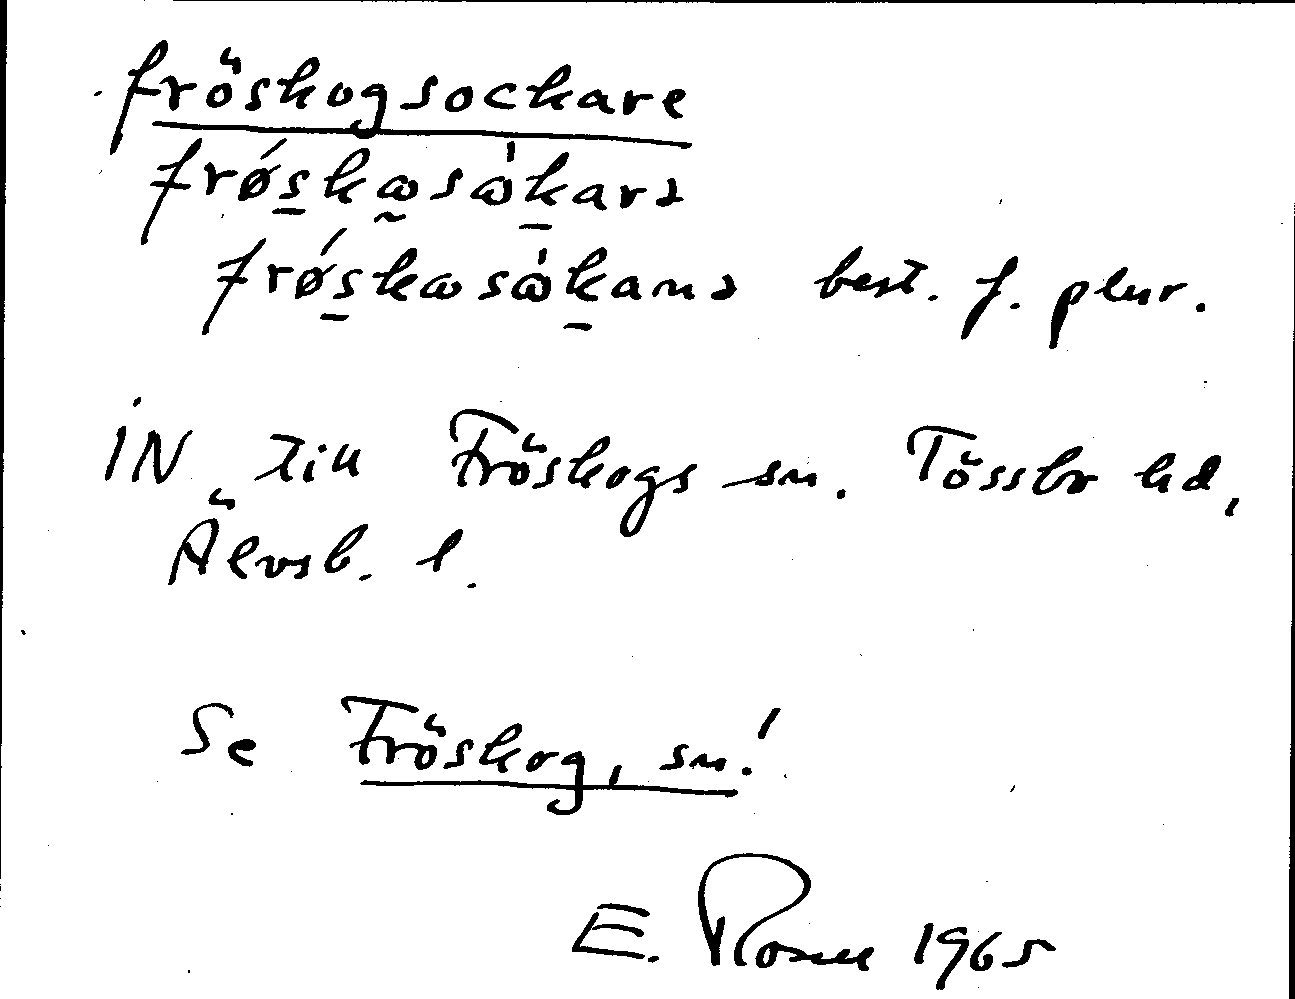 fröskogsockare
frǿskɷsɷ̀karə
frǿskɷsɷ̀kanə best. f. plur.
IN till Fröskogs sn. Tössbo hd,
Älvsb. l.
Se Fröskog, sn!
E. 1965